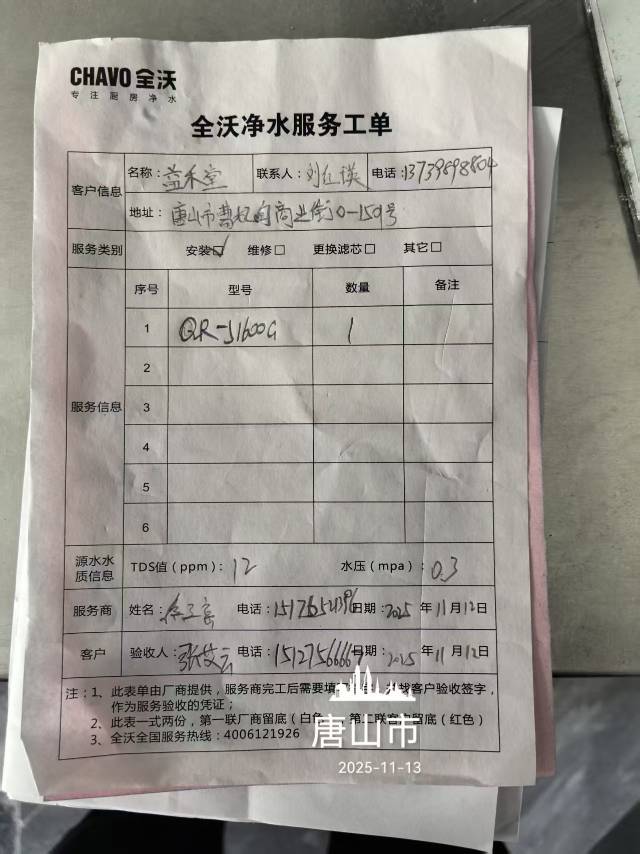 CHAVO 全沃
专注厨房净水
全沃净水服务工单
客户信息
名称：益禾堂 联系人：刘红瑛 电话：13739598804
地址：唐山市曹妃甸商业街0-159号
服务类别 安装☑ 维修□ 更换滤芯□ 其它□
服务信息
序号 型号 数量 备注
1 QR-J1600G 1
2
3
4
5
6
源水水质信息 TDS值（ppm）：12 水压（mpa）：0.3
服务商 姓名： 电话： 日期：2025年11月12日
客户 验收人：张艾云 电话： 日期：2025年11月12日
注：1、此表单由厂商提供，服务商完工后需要填 客户验收签字，
作为服务验收的凭证；
2、此表一式两份，第一联厂商留底（白色 第二联客户留底（红色）
3、全沃全国服务热线：4006121926
唐山市
2025-11-13